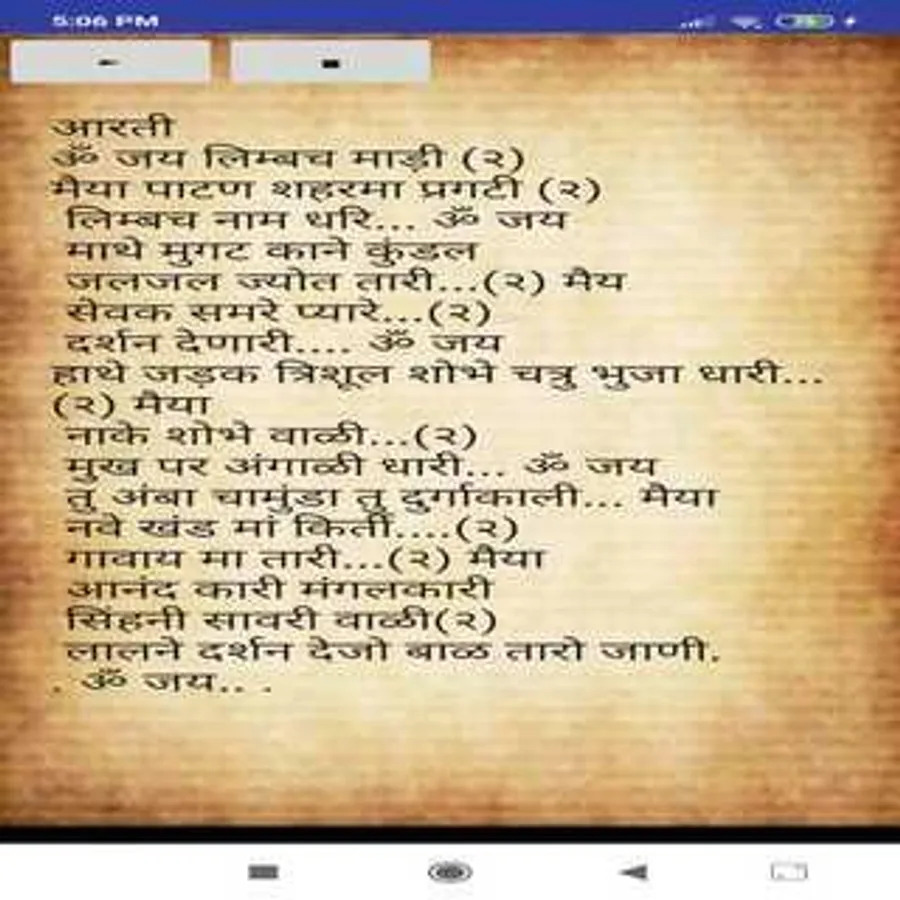 5:06 PM
आरती
ॐ जय लिम्बच माड़ी (२)
मैया पाटण शहरमा प्रगटी (२)
लिम्बच नाम धरि... ॐ जय
माथे मुगट काने कुंडल
जलजल ज्योत तारी...(२) मैय
सेवक समरे प्यारे...(२)
दर्शन देणारी.... ॐ जय
हाथे जड़क त्रिशूल शोभे चत्रु भुजा धारी...
(२) मैया
नाके शोभे वाळी...(२)
मुख पर अंगाळी धारी... ॐ जय
तु अंबा चामुंडा तू दुर्गाकाली... मैया
नवे खंड मां किर्ती....(२)
गावाय मा तारी...(२) मैया
आनंद कारी मंगलकारी
सिंहनी सावरी वाळी(२)
लालने दर्शन देजो बाळ तारो जाणी.
. ॐ जय.. .